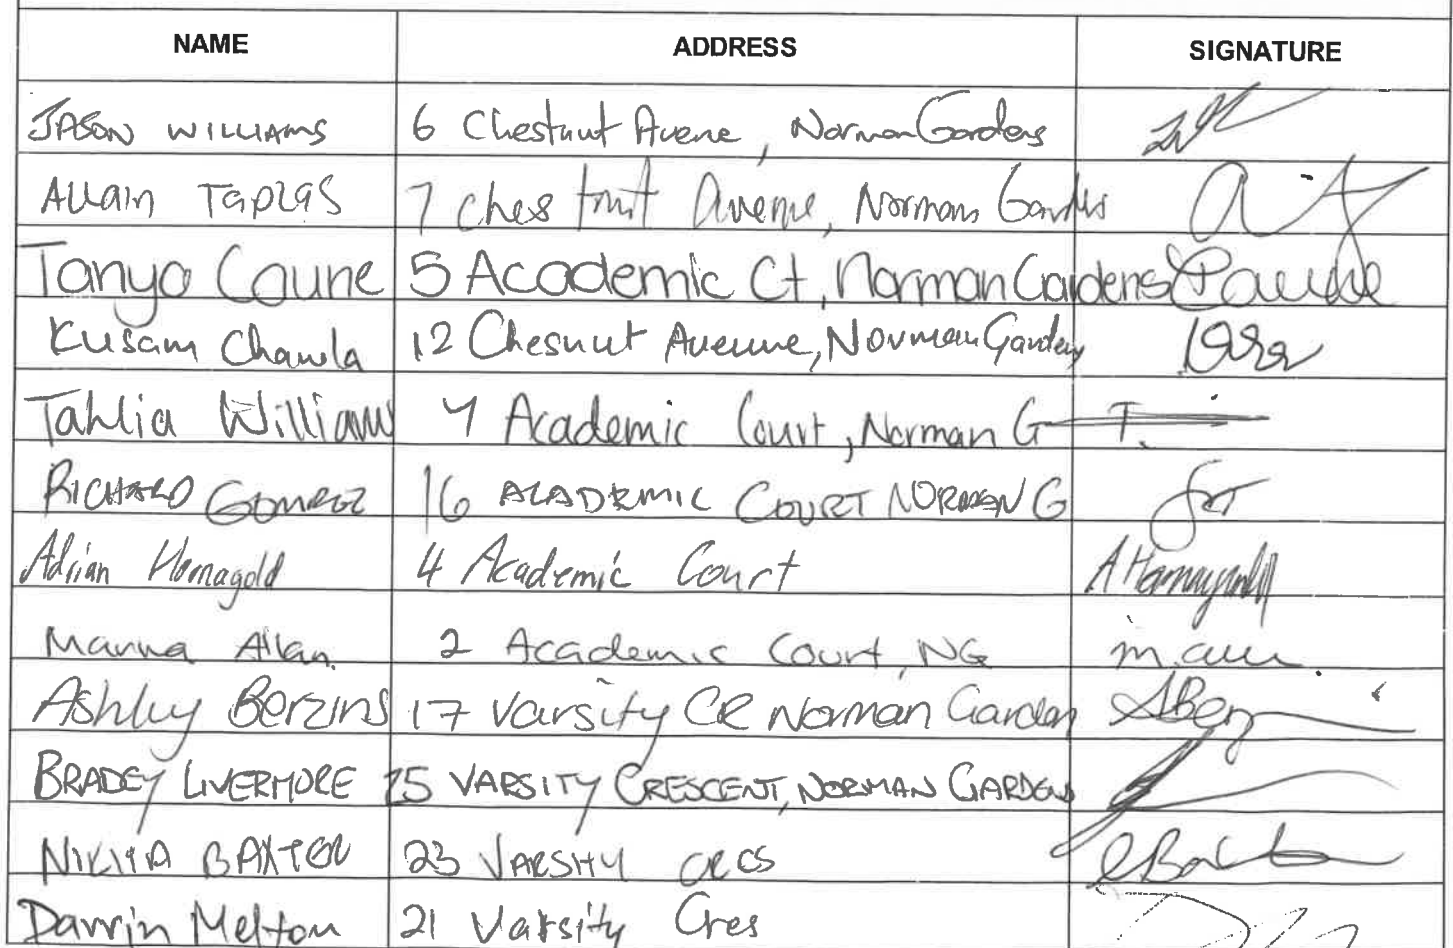 NAME ADDRESS SIGNATURE
JASON WILLIAMS 6 Chestnut Avene, Norman Gardens
Allain TaplaS 7 Chestnut Avenue, Norman Gardens
Tanya Caune 5 Academic Ct, Norman Gardens
Kusam Chawla 12 Chesnut Avenue, Norman Gardens
Tahlia William 7 Academic Court, Norman G T.
RICHARD GOMEZ 16 ACADEMIC COURT NORMAN G
Adrian Hornagold 4 Academic Court
Allan 2 Academic Court, NG
Ashley Berzins 17 Varsity CR Norman Garden
BRADEY LIVERMORE 25 VARSITY CRESCENT, NORMAN GARDENS
NIKITA BAXTER 23 VARSITY CRES
Darrin Melton 21 Varsity Cres